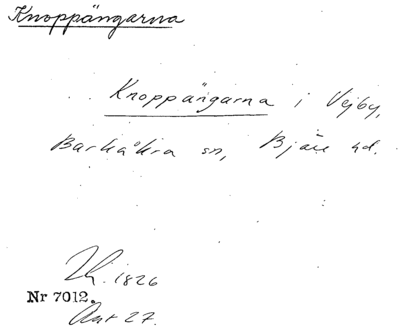 Knoppängarna
Knoppängarna i Vejby,
Barkåkra sn, Bjäre hd.
1826
Nr 7012.
27.